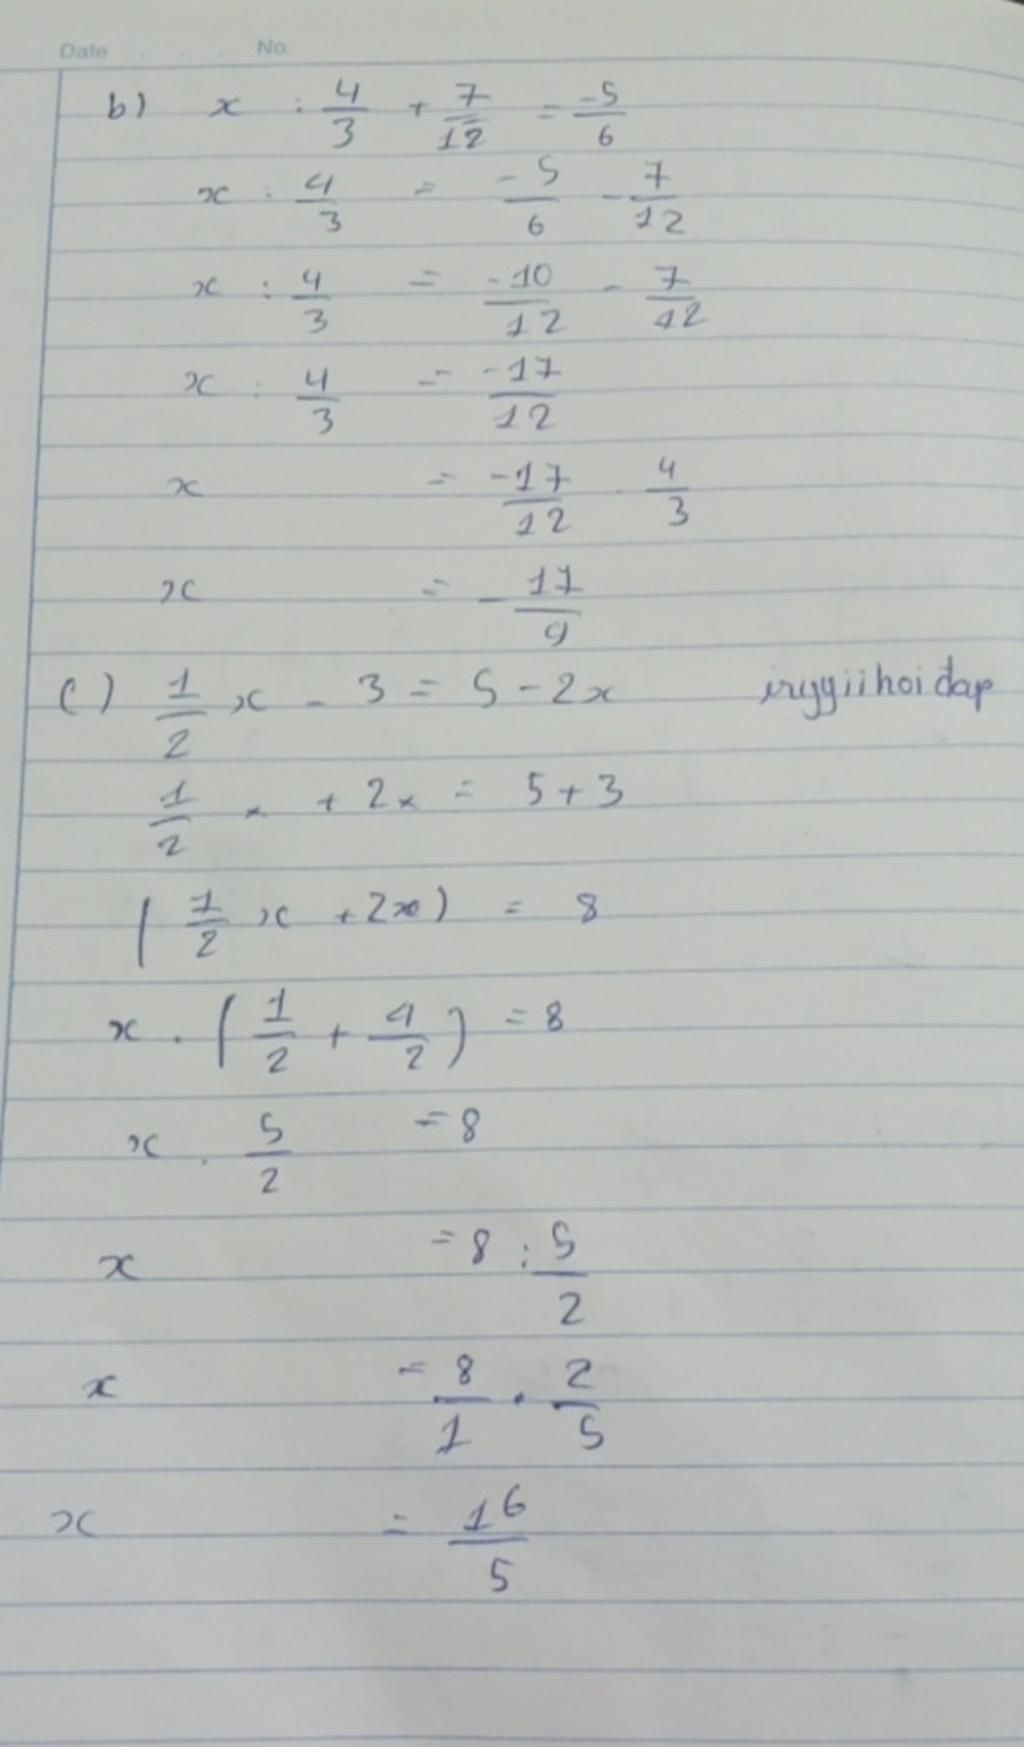 Date . . . No.
b) x : 4/3 + 7/12 = -5/6
x : 4/3 = -5/6 - 7/12
x : 4/3 = -10/12 - 7/12
x : 4/3 = -17/12
x = -17/12 . 4/3
x = -17/9
c) 1/2 x - 3 = 5 - 2x iryyiihoidap
1/2 x + 2x = 5 + 3
( 1/2 x + 2x ) = 8
x . ( 1/2 + 4/2 ) = 8
x . 5/2 = 8
x = 8 : 5/2
x = 8/1 . 2/5
x = 16/5